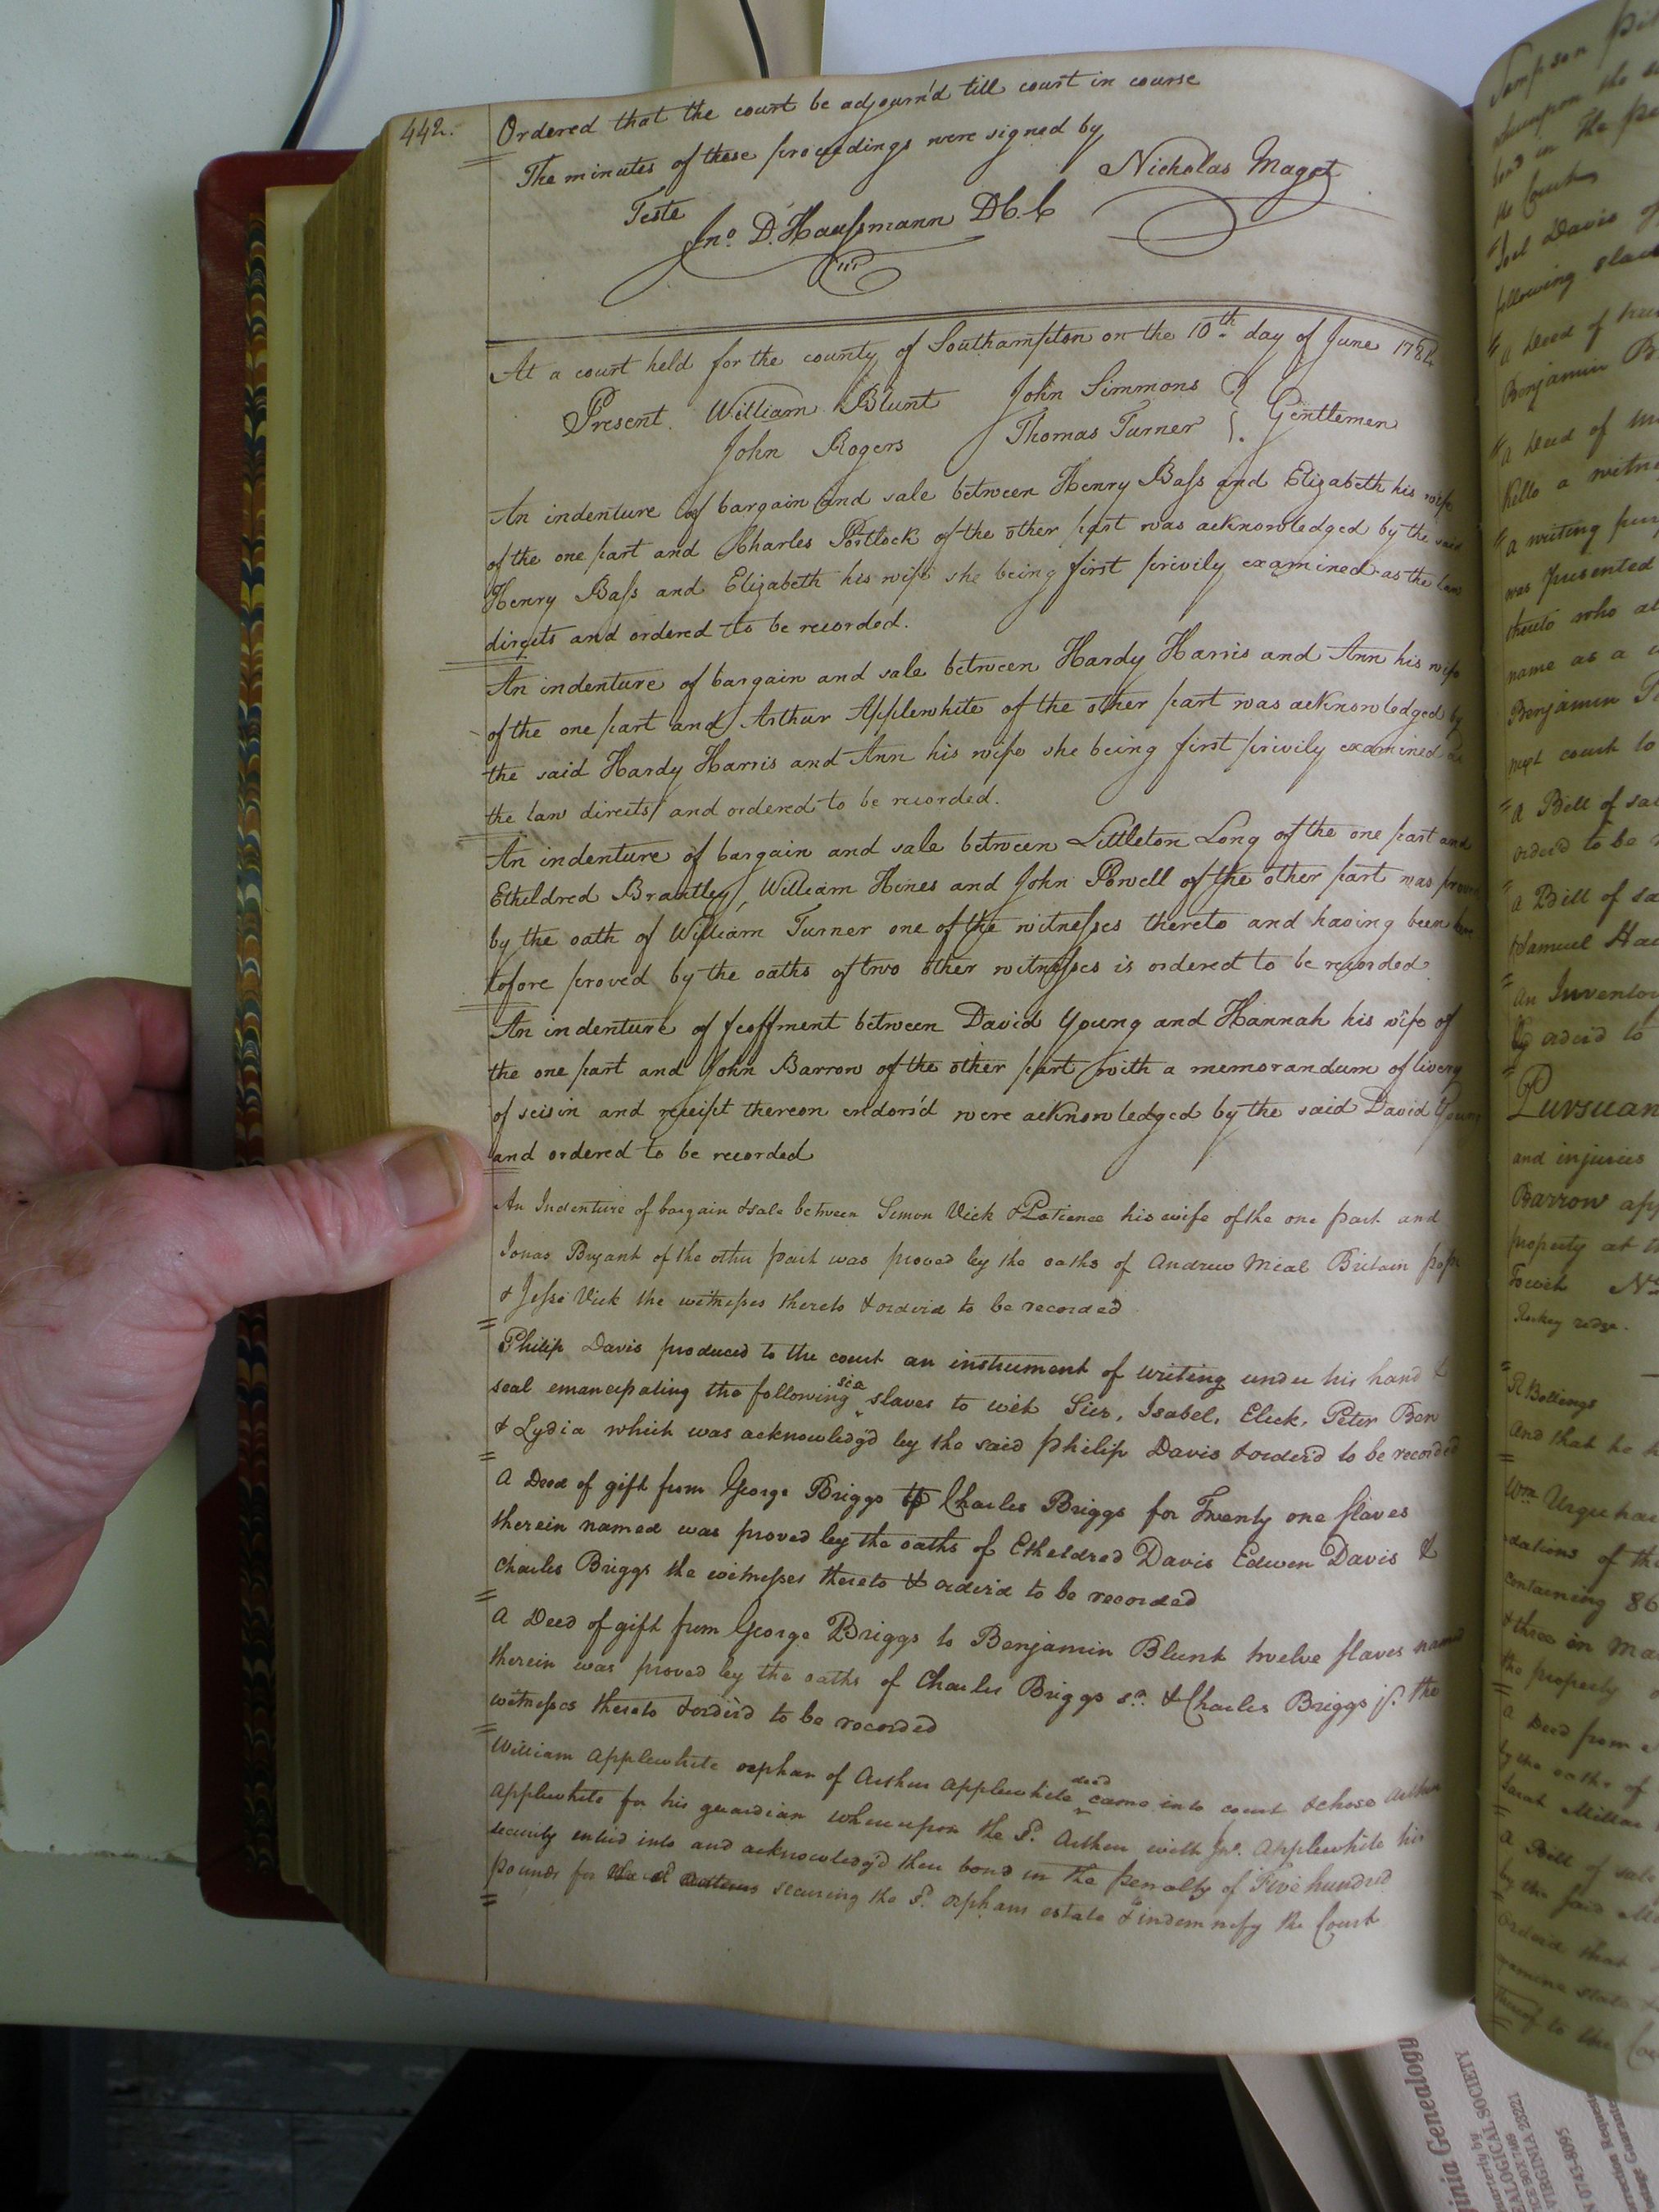 442.
Ordered that the court be adjourn'd till court in course
The minutes of these proceedings were signed by
Nicholas Maget
Teste
Jno. D. Haussmann D C. C
At a court held for the county of Southampton on the 10th day of June 1784
Present William Blunt John Simmons } Gentlemen
John Rogers Thomas Turner
An indenture of bargain and sale between Henry Bass and Elizabeth his wife
of the one part and Charles Portlock of the other part was acknowledged by the said
Henry Bass and Elizabeth his wife she being first privily examined as the law
directs and ordered to be recorded.
An indenture of bargain and sale between Hardy Harris and Ann his wife
of the one part and Arthur Applewhite of the other part was acknowledged by
the said Hardy Harris and Ann his wife she being first privily examined as
the law directs and ordered to be recorded.
An indenture of bargain and sale between Littleton Long of the one part and
Etheldred Brantley, William Hines and John Powell of the other part was proved
by the oath of William Turner one of the witnesses thereto and having been here
tofore proved by the oaths of two other witnesses is ordered to be recorded.
An indenture of feoffment between David Young and Hannah his wife of
the one part and John Barrow of the other part with a memorandum of livery
of seisin and receipt thereon endors'd were acknowledged by the said David Young
and ordered to be recorded
An Indenture of bargain & sale between Simon Vick & Patience his wife of the one part and
Jonas Bryant of the other part was proved by the oaths of Andrew Mial Britain
& Jesse Vick the witnesses thereto & order'd to be recorded
Philip Davis produced to the court an instrument of writing under his hand &
seal emancipating the following six slaves to wit Isabel, Elick, Peter Ben
& Lydia which was acknowledg'd by the said Philip Davis & order'd to be recorded
A Deed of gift from George Briggs to Charles Briggs for Twenty one slaves
therein named was proved by the oaths of Etheldred Davis Edwin Davis &
Charles Briggs the witnesses thereto & order'd to be recorded
A Deed of gift from George Briggs to Benjamin Blunt twelve slaves named
therein was proved by the oaths of Charles Briggs sr. & Charles Briggs jr. the
witnesses thereto & order'd to be recorded
William Applewhite orphan of Arthur Applewhite decd came into court & chose Arthur
Applewhite for his guardian whereupon the sd. Arthur with Jno. Applewhite his
security enter'd into and acknowledg'd their bond in the penalty of Five hundred
pounds for securing the sd. orphans estate & indemnify the Court
Sampson
whereupon the
bond in the
the Court
Joel Davis of
following slave
A Deed of
Benjamin B
A Deed of
Kello a witne
A writing
was presented
thereto who
name as a
Benjamin
next court to
A Bill of sale
order'd to be
A Bill of sa
Samuel
An Inventory
order'd to
Pursuan
and injuries
Barrow
property at
Towit No
Rockey ridge.
R Bollings
And that he
Wm Urquhar
of the
containing 86
& three in
the property
A Deed from
by the oaths of
Sarah Millar
A Bill of sale
by the said
Order'd that
examine state
thereof to the
inia Genealogy
arterly by
EALOGICAL SOCIETY
CE BOX 7469
VIRGINIA 23221
0743-8095